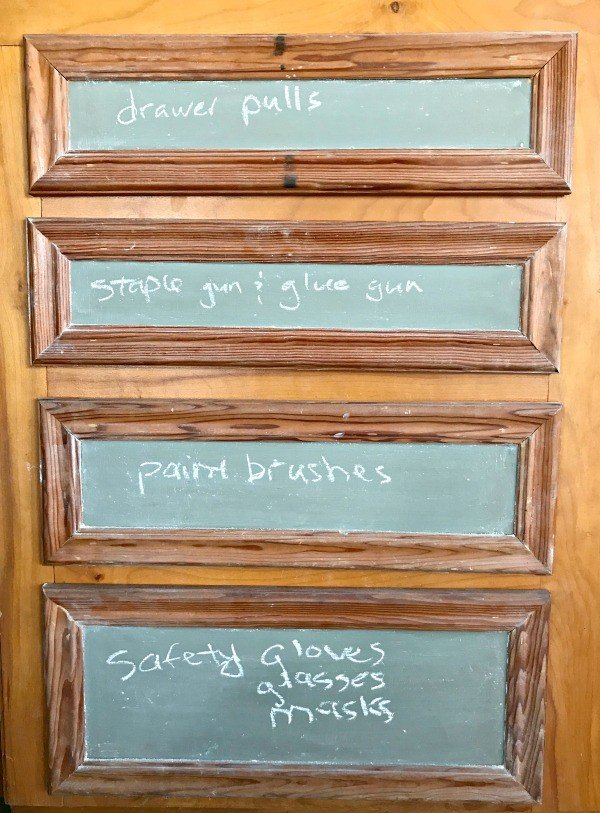 drawer pulls
staple gun & glue gun
paint brushes
safety gloves
glasses
masks